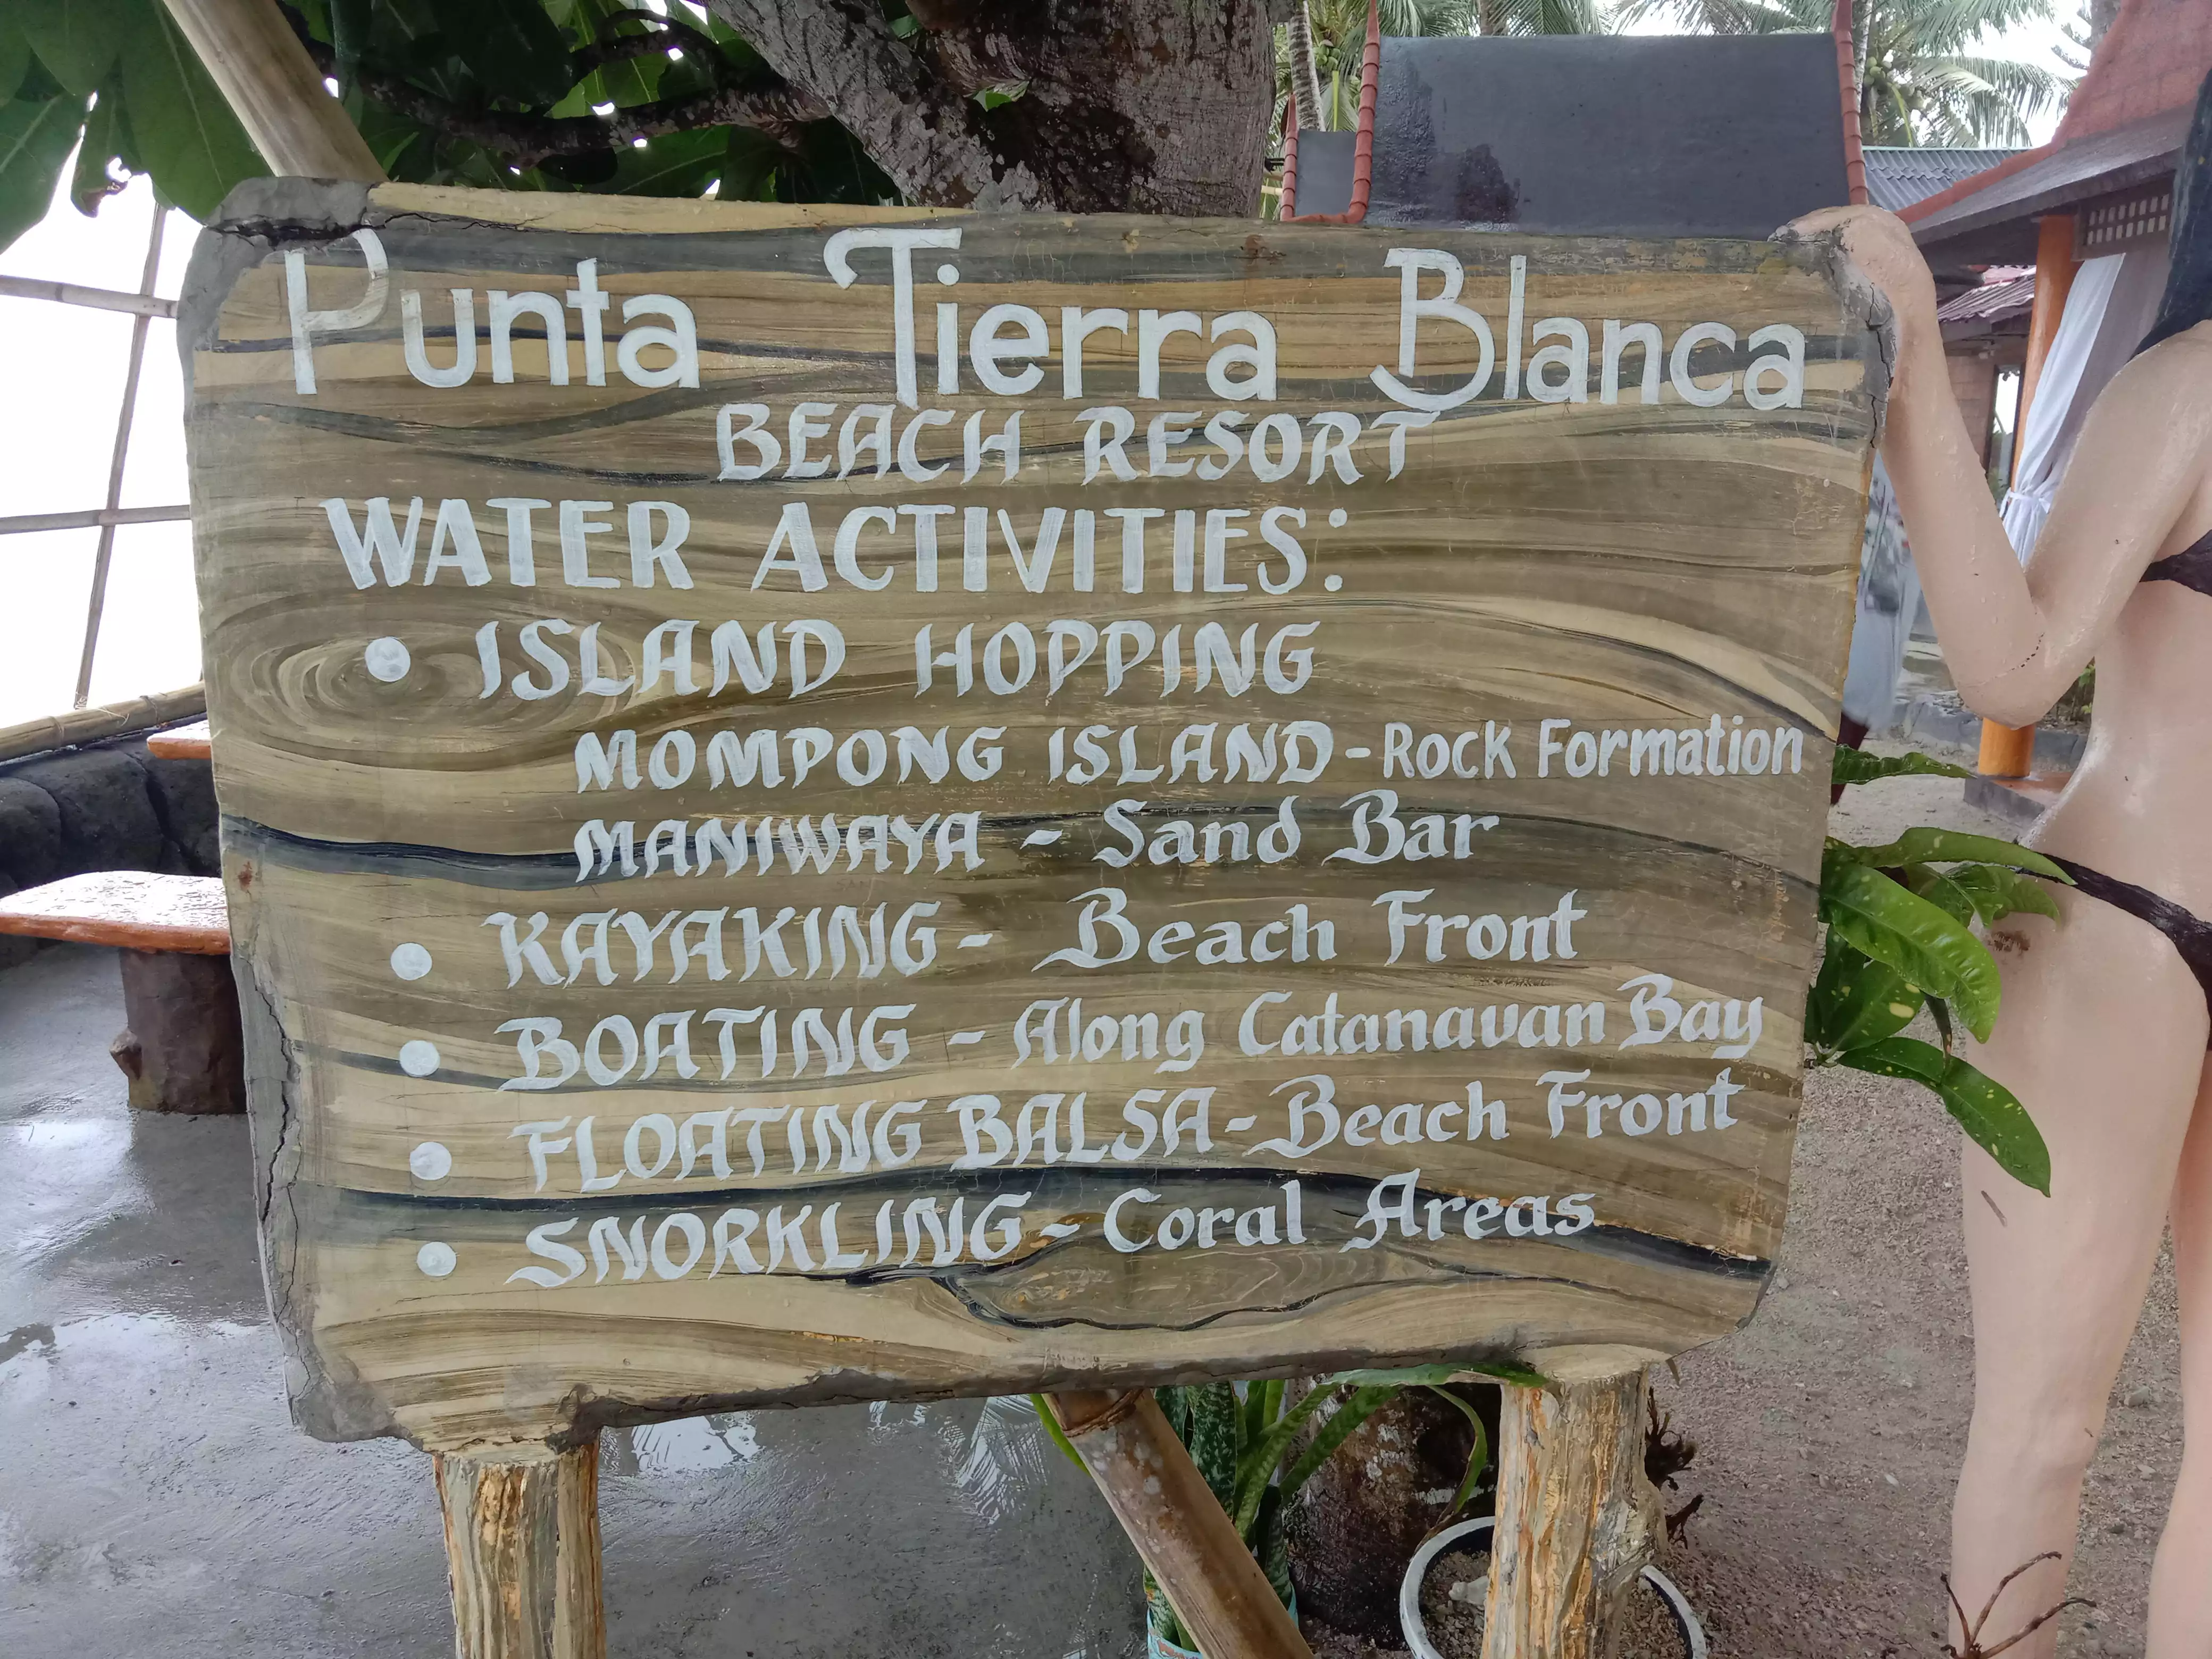 Punta Tierra Blanca
BEACH RESORT
WATER ACTIVITIES:
• ISLAND HOPPING
MOMPONG ISLAND - Rock Formation
MANIWAYA - Sand Bar
• KAYAKING - Beach Front
• BOATING - Along Catanauan Bay
• FLOATING BALSA - Beach Front
• SNORKLING - Coral Areas